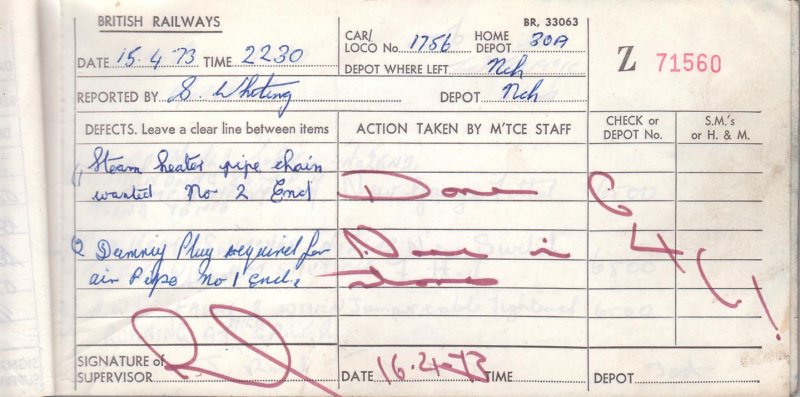 BRITISH RAILWAYS
BR, 33063
DATE 15.4.73 TIME 2230
CAR/ LOCO No. 1756 HOME DEPOT 30A
Z 71560
DEPOT WHERE LEFT Nch
REPORTED BY S. Whiting DEPOT Nch
DEFECTS. Leave a clear line between items
ACTION TAKEN BY M'TCE STAFF
CHECK or DEPOT No.
S.M.'s or H. & M.
1) Steam heater pipe chain
wanted No 2 End Done
2 Dummy Plug required for None in
air Pipe No 1 End.
SIGNATURE of SUPERVISOR
DATE 16.4.73 TIME
DEPOT